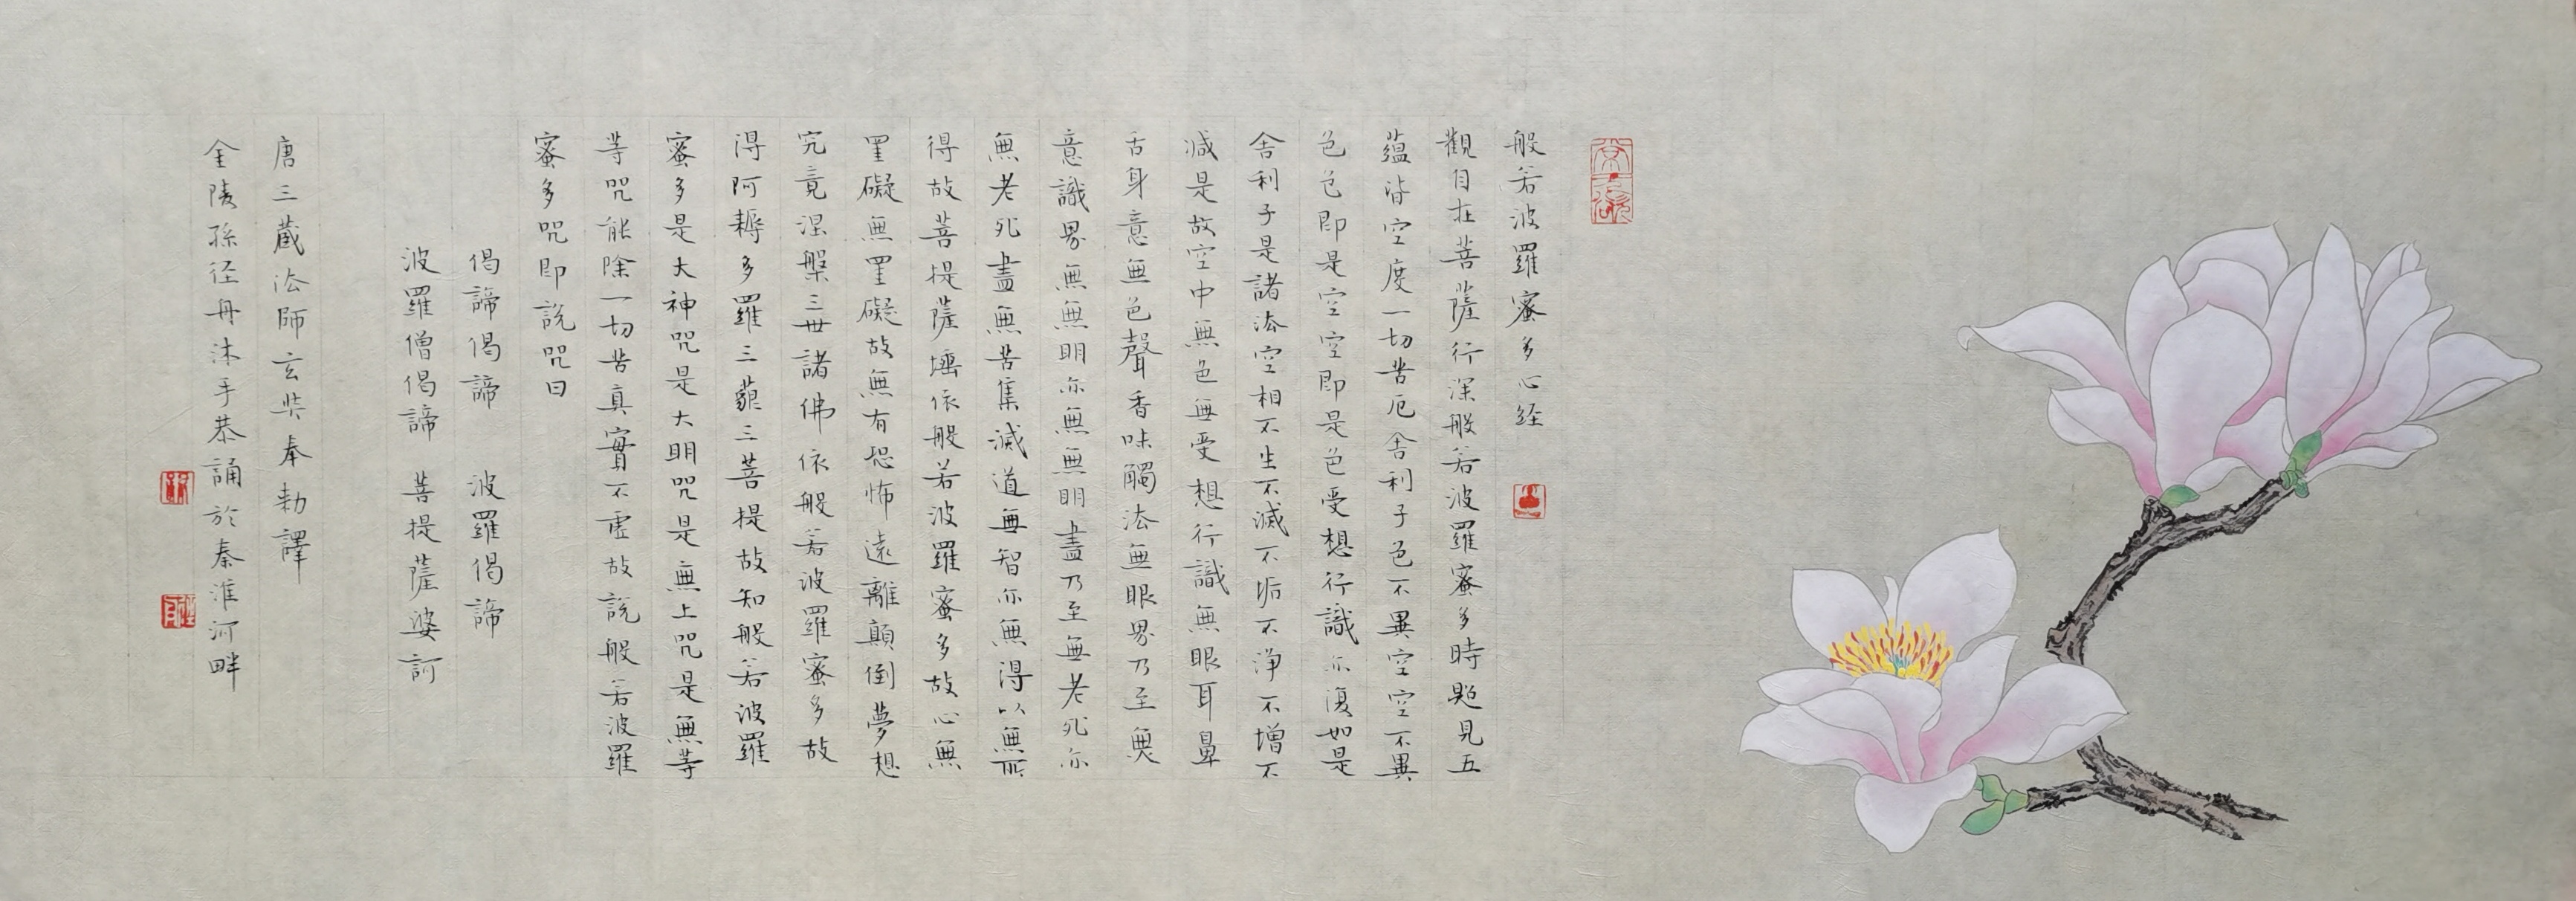 般若波羅蜜多心经
觀自在菩薩行深般若波羅蜜多時照見五
蘊皆空度一切苦厄舍利子色不異空空不異
色色即是空空即是色受想行識亦復如是
舍利子是諸法空相不生不滅不垢不淨不增不
減是故空中無色無受想行識無眼耳鼻
舌身意無色聲香味觸法無眼界乃至無
意識界無無明亦無無明盡乃至無老死亦
無老死盡無苦集滅道無智亦無得以無所
得故菩提薩埵依般若波羅蜜多故心無
罣礙無罣礙故無有恐怖遠離顛倒夢想
究竟涅槃三世諸佛依般若波羅蜜多故
得阿耨多羅三藐三菩提故知般若波羅
蜜多是大神咒是大明咒是無上咒是無等
等咒能除一切苦真實不虛故說般若波羅
蜜多咒即說咒曰
偈諦偈諦 波羅偈諦
波羅僧偈諦 菩提薩婆訶
唐三藏法師玄奘奉勅譯
金陵孫径丹沐手恭誦於秦淮河畔